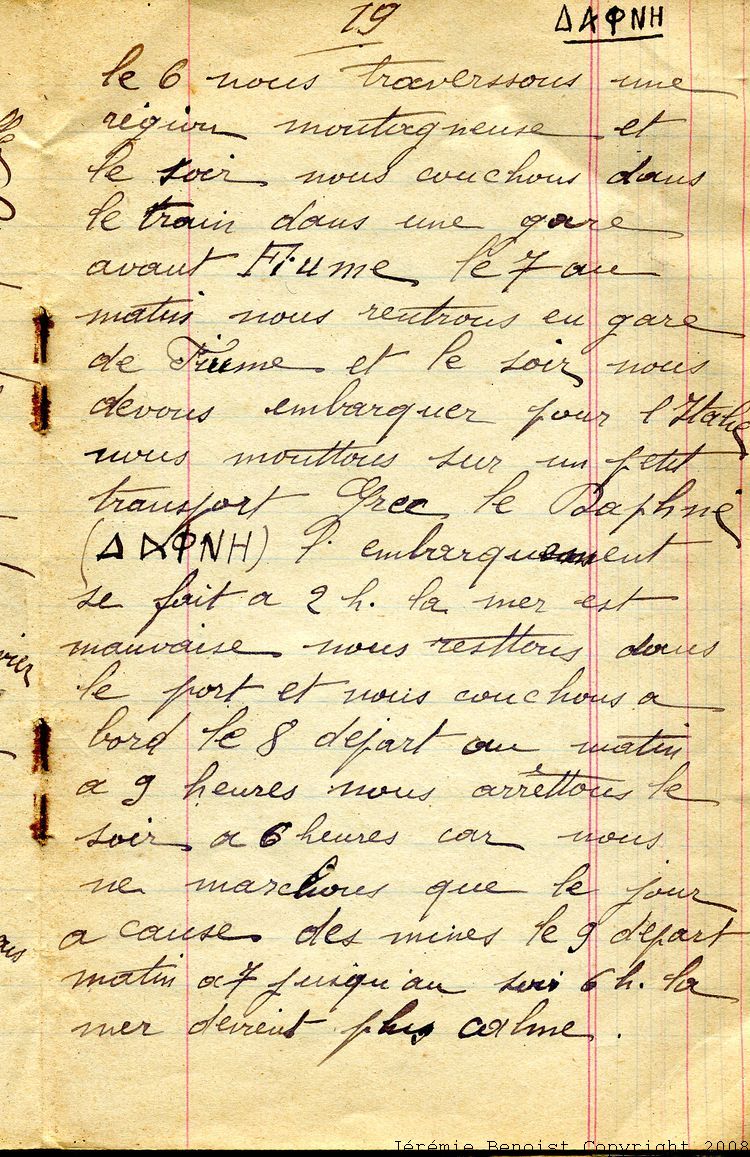 19
ΔΑΦΝΗ
le 6 nous traverssons une
région montagneuse et
le soir nous couchons dans
le train dans une gare
avant Fiume le 7 au
matin nous rentrons en gare
de Fiume et le soir nous
devons embarquer pour l'Italie
nous mouttons sur un petit
transport Grec le Daphné
(ΔΑΦΝΗ) l'embarquement
se fait a 2 h. la mer est
mauvaise nous resttons dans
le port et nous couchons a
bord le 8 départ au matin
a 9 heures nous arrêttons le
soir a 6 heures car nous
ne marchons que le jour
a cause des mines le 9 départ
matin a 7 jusqu'au soir 6 h. la
mer devient plus calme.
Jérémie Benoist Copyright 2008